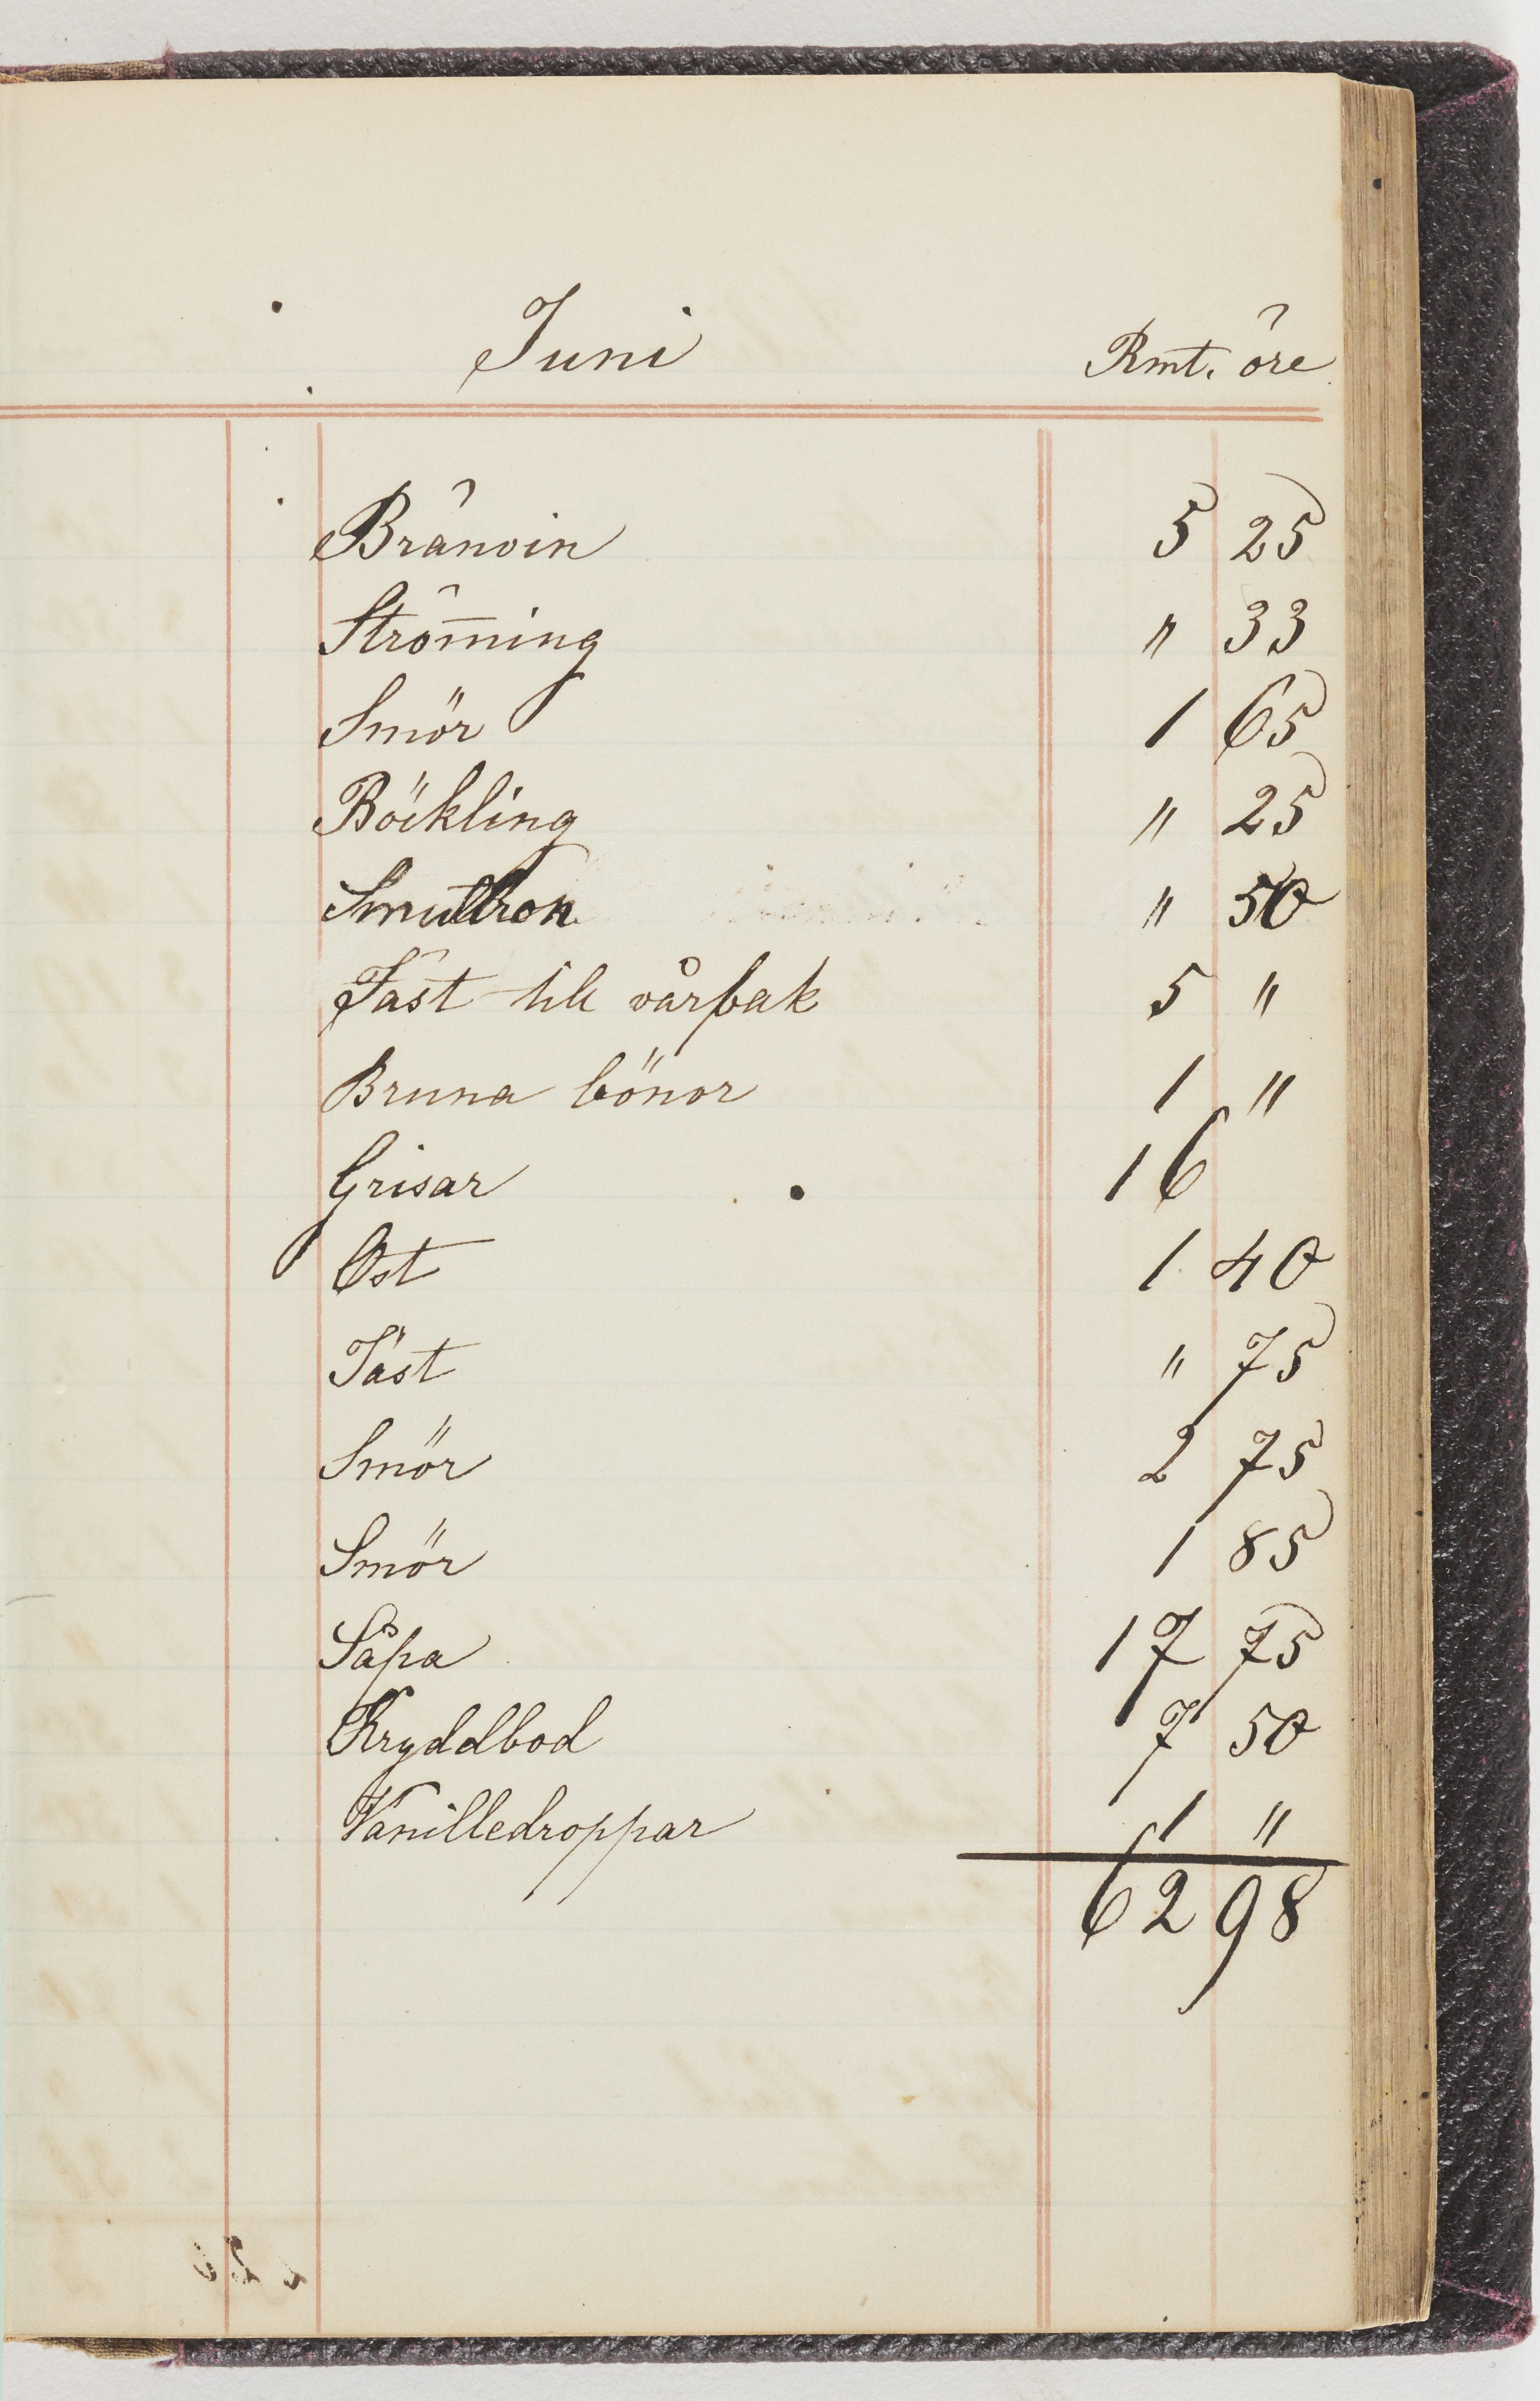 Juni Rmt. öre
Bränvin 5 25
Ström̅ing " 33
Smör 1 65
Böckling " 25
Smultron " 50
Jäst till vårbak 5 "
Bruna bönor 1 "
Grisar 16
Ost 1 40
Jäst " 75
Smör 2 75
Smör 1 85
Såpa 17 75
Kryddbod 7 50
Vanilledroppar 1 "
62 98